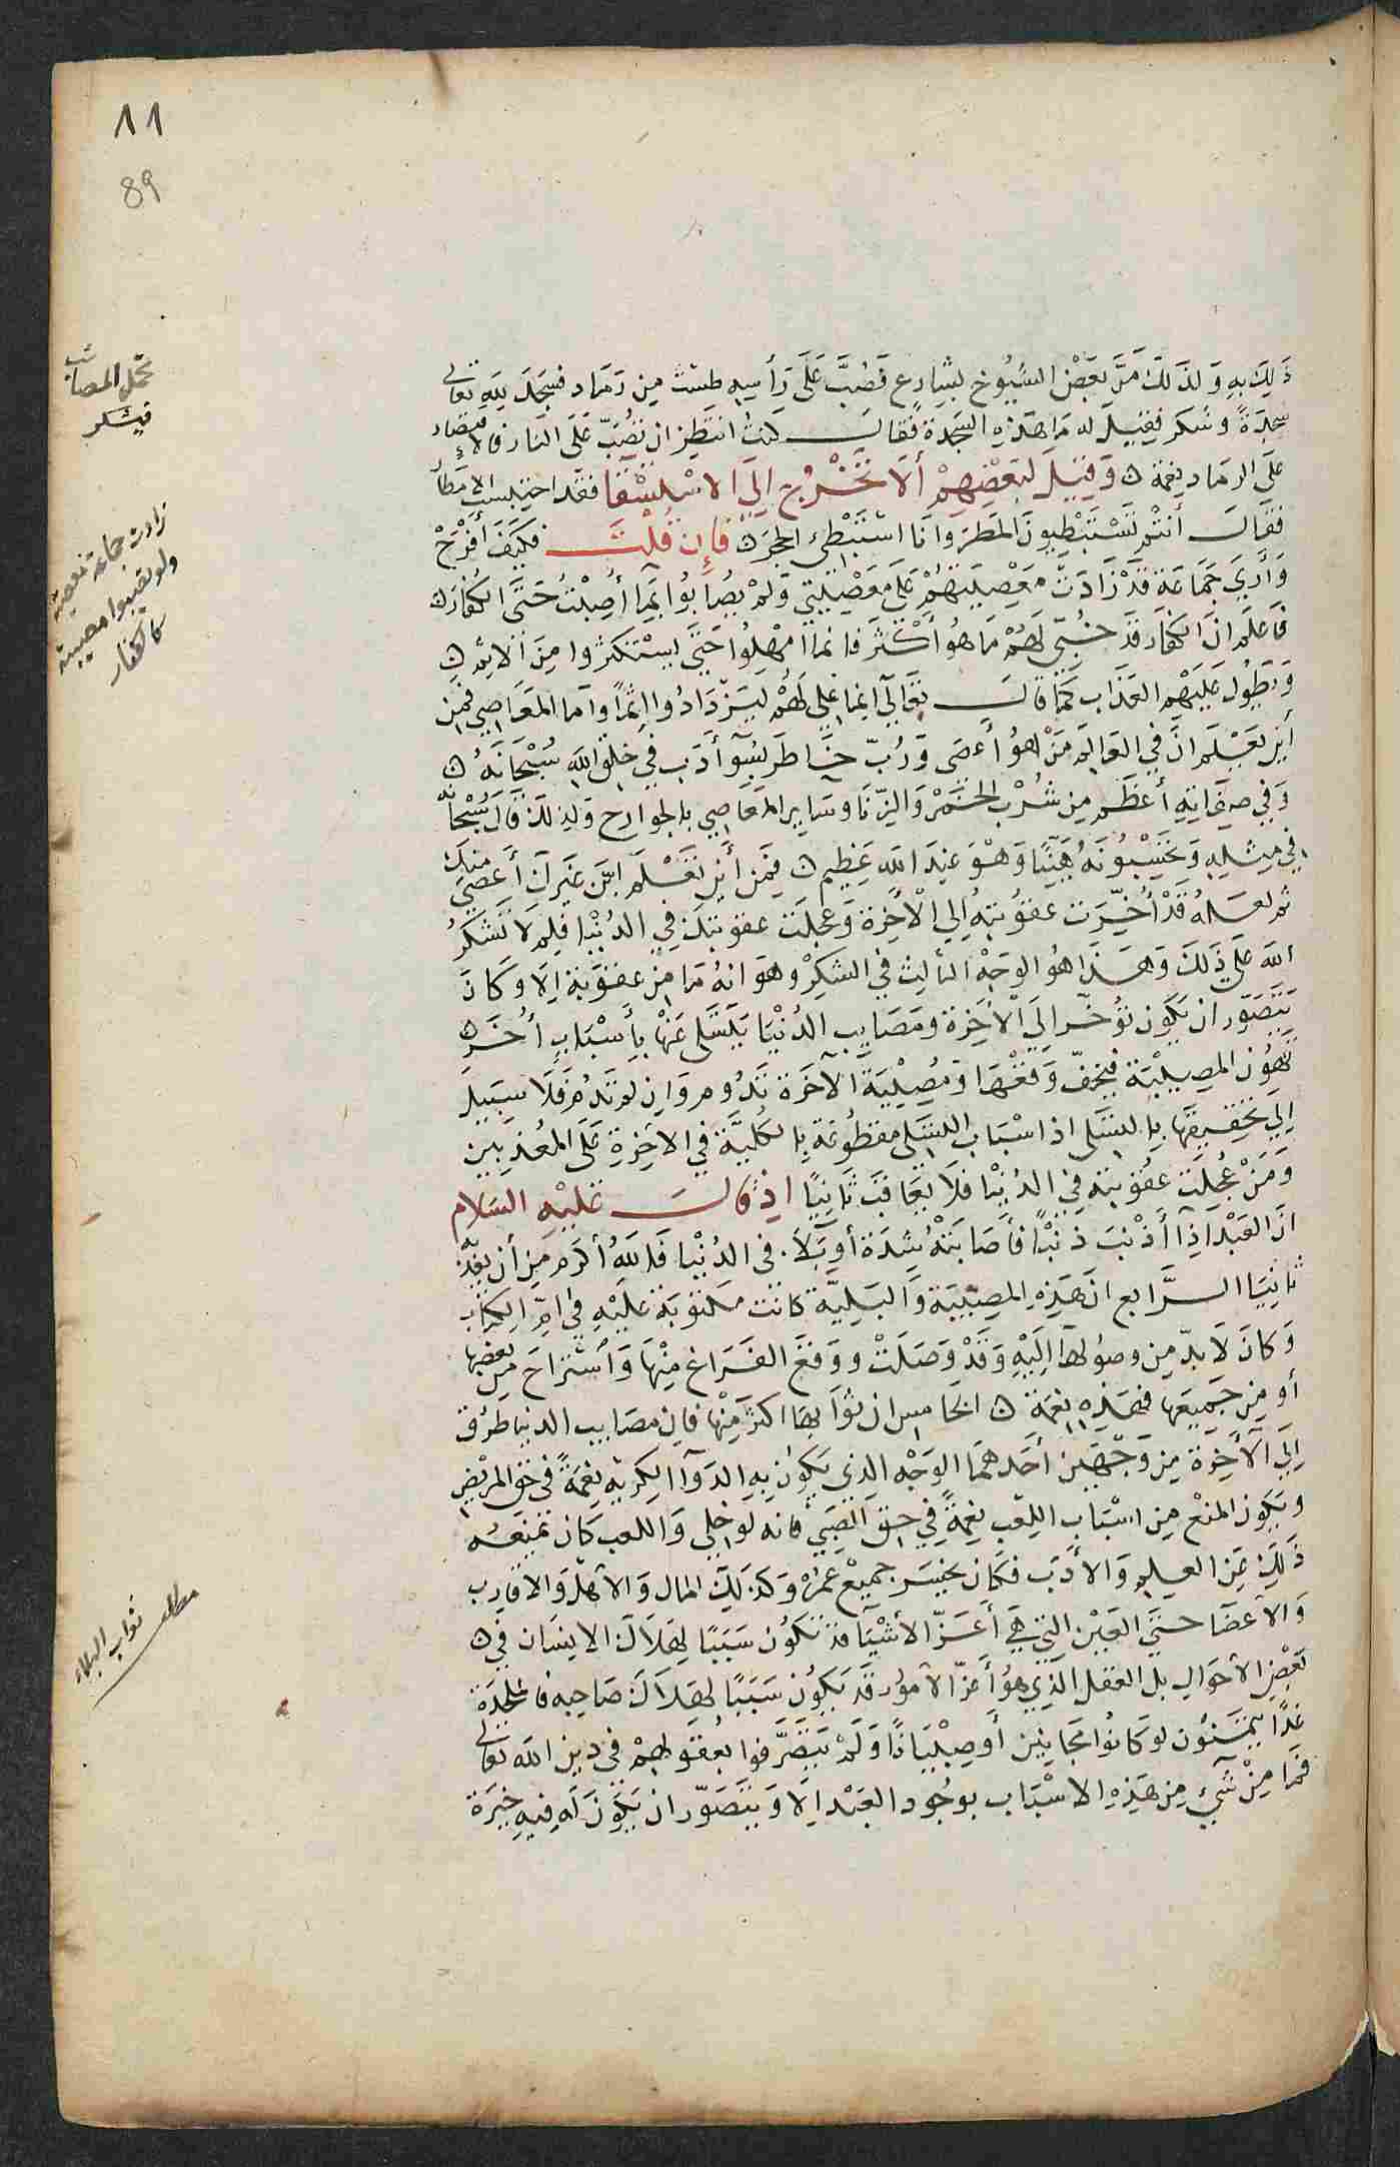 11
89
تحمل المصائب
فيشكر
زادت جماعة معصية
ولو يصيبوا مصيبة
كالكفار
ذَلِكَ بِهِ وَلذَلِكَ مَرَّ بَعْضُ الشُيُوخ بشَارِع فَصُبَّ عَلَى رَأسِهِ طشتٌ مِن رَمَاد فسَجَدَ لِلّهِ تعَالى
سَجدَةً وشكر فقِيلَ له مَا هَذِهِ السَجدَة فَقَالَ كنتُ انتَظِر ان تُصَبّ عَلَى النار فالاقتصار
علَى الرمَاد نِعمَة ۞ وَقِيلَ لبَعْضِهِمْ ألَا تَخْرُج إلَى الاسْتِسْقَا فقد احتبست الامطار
فقَالَ أنتُم تَسْتَبْطِيونَ المَطَرَ وانَا استَبْطِئ الحجَرَ ۞ فَإن قُلْتَ فكَيفَ أفْرَحُ
وَأرَى جَمَاعَة قَدْ زَادَتْ مَعْصِيَتهُمْ عَلَى مَعْصِيَتِي وَلَمْ يُصَابُوا بمَا أُصِبْتُ حَتَّى الكُفّار ۞
فَاعلَم انَ الكفّار قَد خُبِّئ لَهُمْ مَا هُو أكْثَر فانما امْهِلُوا حَتَّى يسْتَكثرُوا مِنَ الاثم ۞
وَيَطُول عَلَيْهِم العَذَاب كَمَا قَالَ تعَالَى انما نملي لَهُمْ ليَزْدَادُوا إثمًا وأما المعَاصِي فمِن
أيْنَ تَعْلَم انَّ في العَالَم مَنْ هوُ أعصَى وَرُبّ خَاطر بسُوِ أدَب في حَق اللَّهِ سُبْحَانَهُ ۞
وَفي صِفَاتِهِ أعظَم مِن شُرْب الخَمْر وَالزِنَا وسَاير المعَاصِي بالجوارح ولذلكَ قَالَ سُبْحَانه
في مِثلِهِ وَتَحْسَبُونَهُ هَيِّنًا وَهْوَ عِندَ اللهِ عَظِيم ۞ فمَن أيْنَ تَعْلَم انَّ غيرَكَ أعصَى منكَ
ثم لعَلهُ قَدْ أُخّرَت عقُوبتهُ إلى الْآخِرَة وَعجلَت عقوبتكَ في الدُنْيَا فلِمَ لَا تَشكرُ
اللهَ عَلى ذَلكَ وَهَذَا هُو الوجْهُ الثالِث في الشكْرِ وهوَ انهُ مَا مِنْ عقوبَة إلَا وَكانَ
يَتَصَوّر ان يَكون تؤُخّر إلَى الآخِرَة ومَصَايِب الدُنْيَا يَتَسَلَّى عَنْهَا بأسْبَابٍ أُخَر ۞
تَهُون المصِيبَة فيَخِفّ وَقْعُهَا وَمُصِيْبَةُ الآخرَة تَدُوم وَإن لَم تَدُم فَلَا سَبيلَ
إلى تخفيفِهَا بالتسَلّى اذ اسْبَاب التسَلّى مقطُوعَة بالكُليّة في الآخِرَةِ عَلَى المعُذبينَ
وَمَنْ عُجِّلَت عقُوبته فِي الدُنْيَا فلَا يعَاقَب ثَانِيًا إذ قالَ عَليْهِ السَلَام
انَّ العَبْدَ اذا أذْنَبَ ذنْبًا فأصَابَتْهُ شِدّة أو بَلَا. فى الدُنْيَا فاللهُ أكرَم مِن أن يعَذبه
ثانيا الرَّابع انَّ هَذِهِ المصِيبَة وَالبَليَّة كانَت مكتوبَة علَيْهِ في امِّ الكتَاب
وَكانَ لَا بدّ مِن وصوُلهَا إلَيْهِ وَقَدْ وَصَلَتْ ووَقعَ الفَرَاغ مِنْهَا وَأسْتَرَاحَ مِن بعضِها
أو مِن جَميعِهَا فهَذِهِ نعْمَة ۞ الخامِس ان ثوَابهَا اكثر مِنْهَا فان مصَايب الدنيا طرُق
إلى الآخِرَة مِن وَجْهَين أحَدهمَا الوَجْه الذي يكون بهِ الدَوَا الكريه نِعمَةً في حَق المريْض
ويَكُون المنْع مِن اسْبَاب اللِعب نِعمَةً فِي حقّ الصَبي فانه لو خلى وَاللعب كَان يَمنعُه
ذَلِكَ عَن العِلم وَالأدَب فكان يخسَر جميعَ عمرُهُ وَكذلِكَ المال وَالأهْلُ وَالاقَارِب
وَالأعضَا حتى العَيْن التى هِيَ أعَزّ الأشيَا قد تَكُون سَبَبًا لهَلَاك الانسَان في ۞
بَعْضِ الأحوَال بل العقل الَذي هوُ أعَزّ الأمُور قَد يَكُون سَبَبًا لهَلَاكَ صَاحِبه فالملحدة
غدًا يتمَنَّوْن لو كَانوُا مَجَانِيْن أوصِبْيَانًا وَلَمْ يَتصَرَّفوا بعُقولهِمْ في دِين اللهِ تعَالى
فمَا مِنْ شَيٍ مِن هَذِهِ الاسْبَاب بوجُود العَبْد الَا وَيتَصَوّر ان يَكُونَ لَهُ فِيهِ خيَرَة
مطلب ثواب البلاء